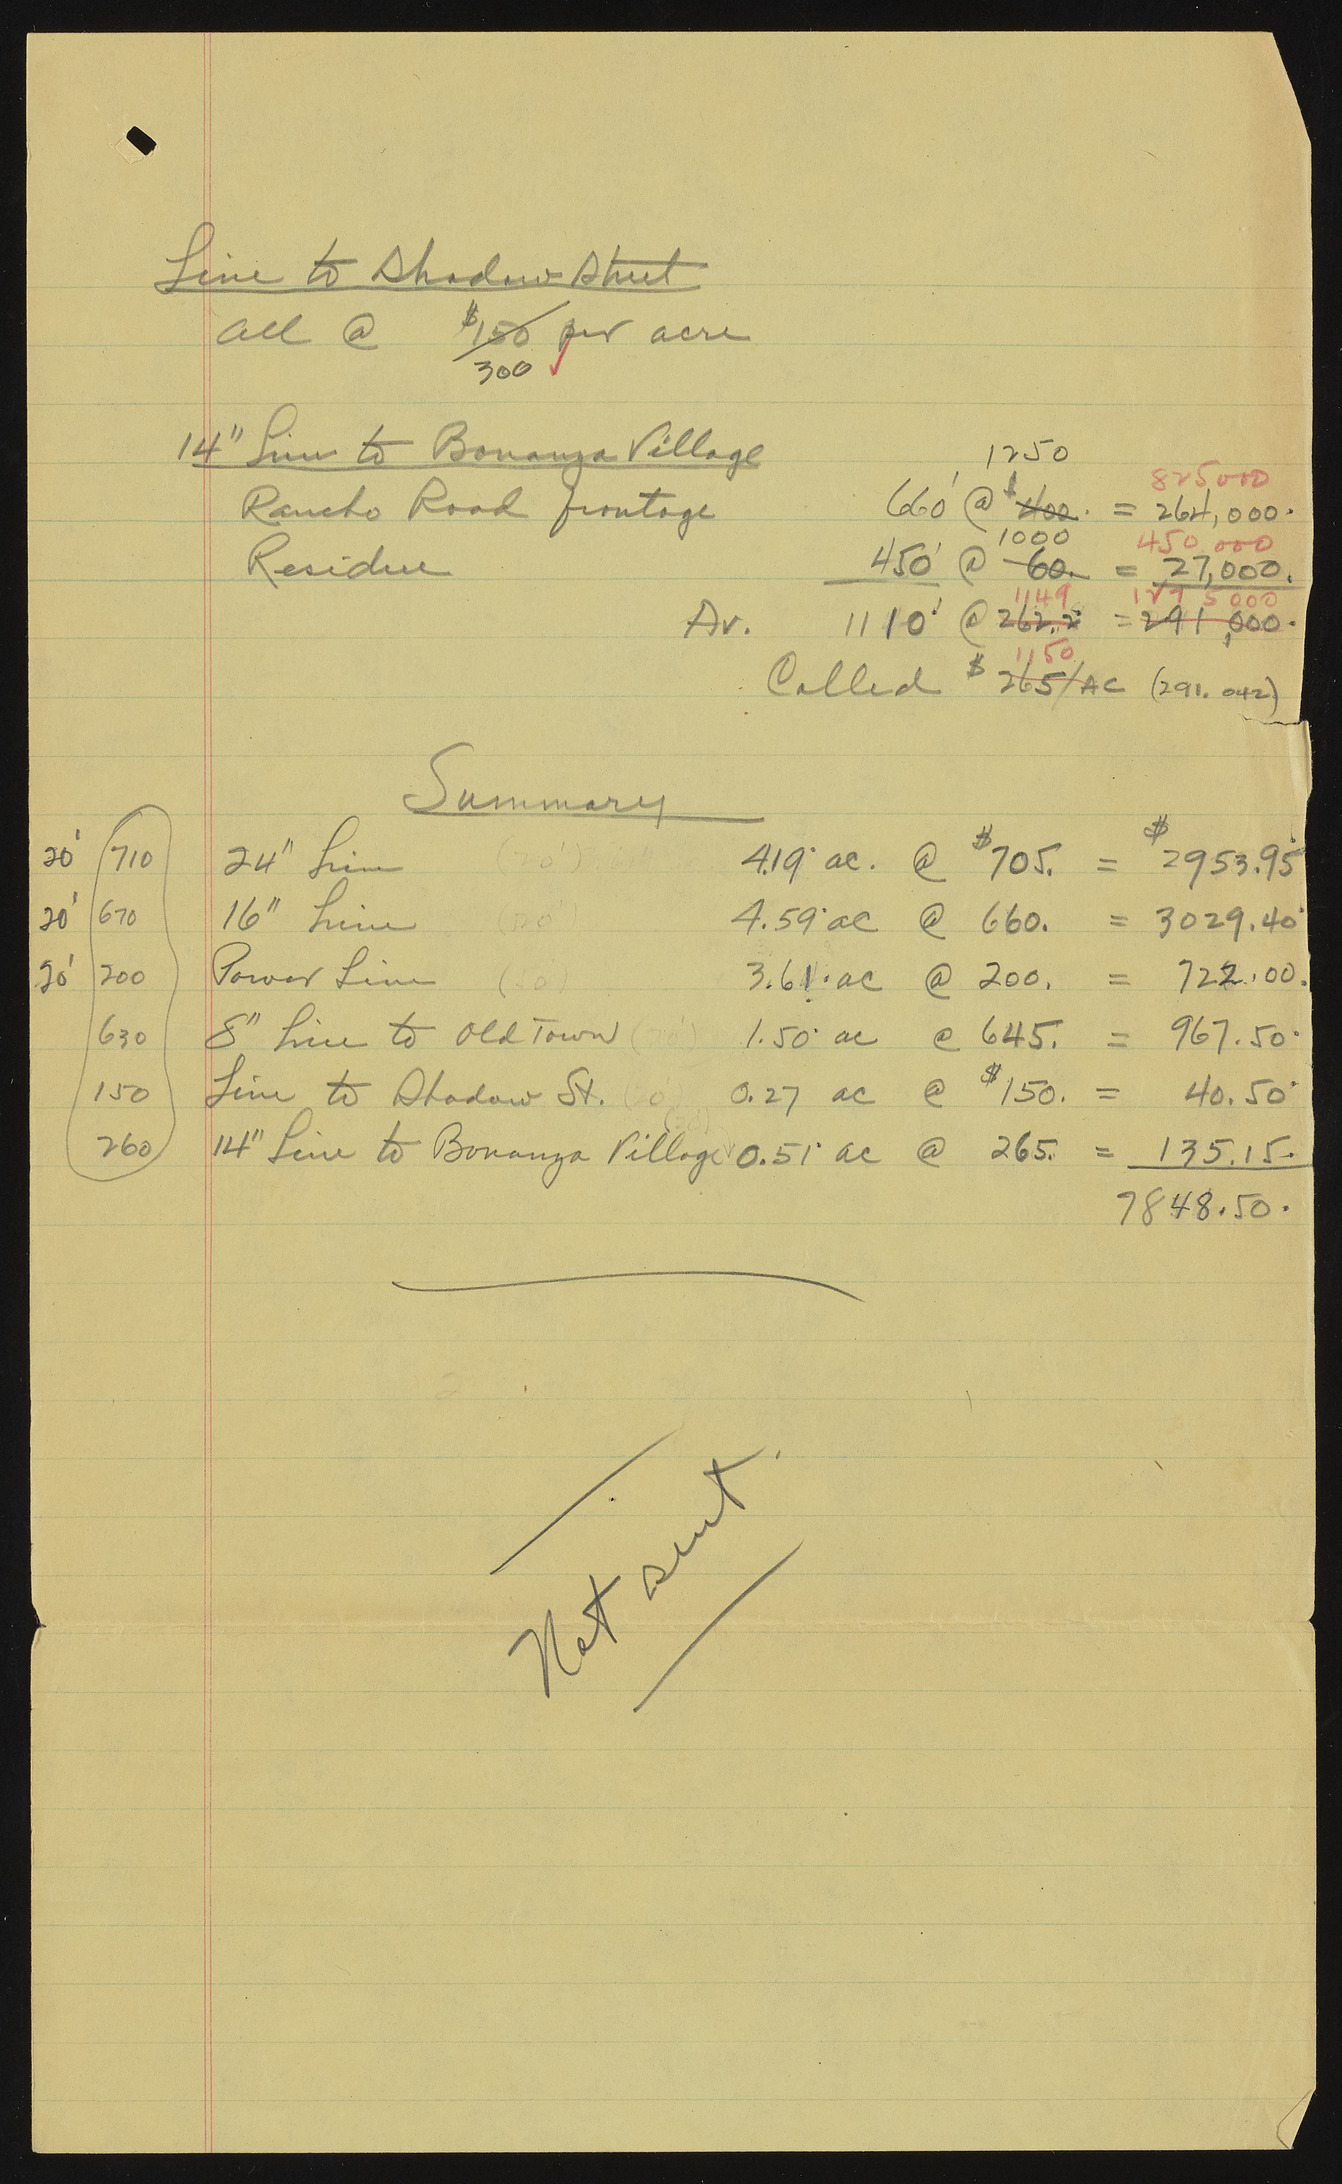 Line to Shadow Street
All @ $150 per acre
300 ✓
14" Line to Bonanza Village
1250
825000
Rancho Road frontage 660' @ $400. = 264,000.
1000 450 000
Residue 450' @ 60. = 27,000.
1149 1275 000
Av. 1110' @ 262.2 = 291,000.
1150
Called $265/AC (291.042)
Summary
20' 710 24" Line (20') 4.19 ac. @ $705. = $2953.95
20' 670 16" Line (20') 4.59 ac @ 660. = 3029.40
20' 200 Power Line (20') 3.61 ac @ 200. = 722.00.
630 8" Line to Old Town (20') 1.50 ac @ 645. = 967.50
150 Line to Shadow St. (20') 0.27 ac @ $150. = 40.50
260 14" Line to Bonanza Village (20') 0.51 ac @ 265. = 135.15.
7848.50.
Not sent.